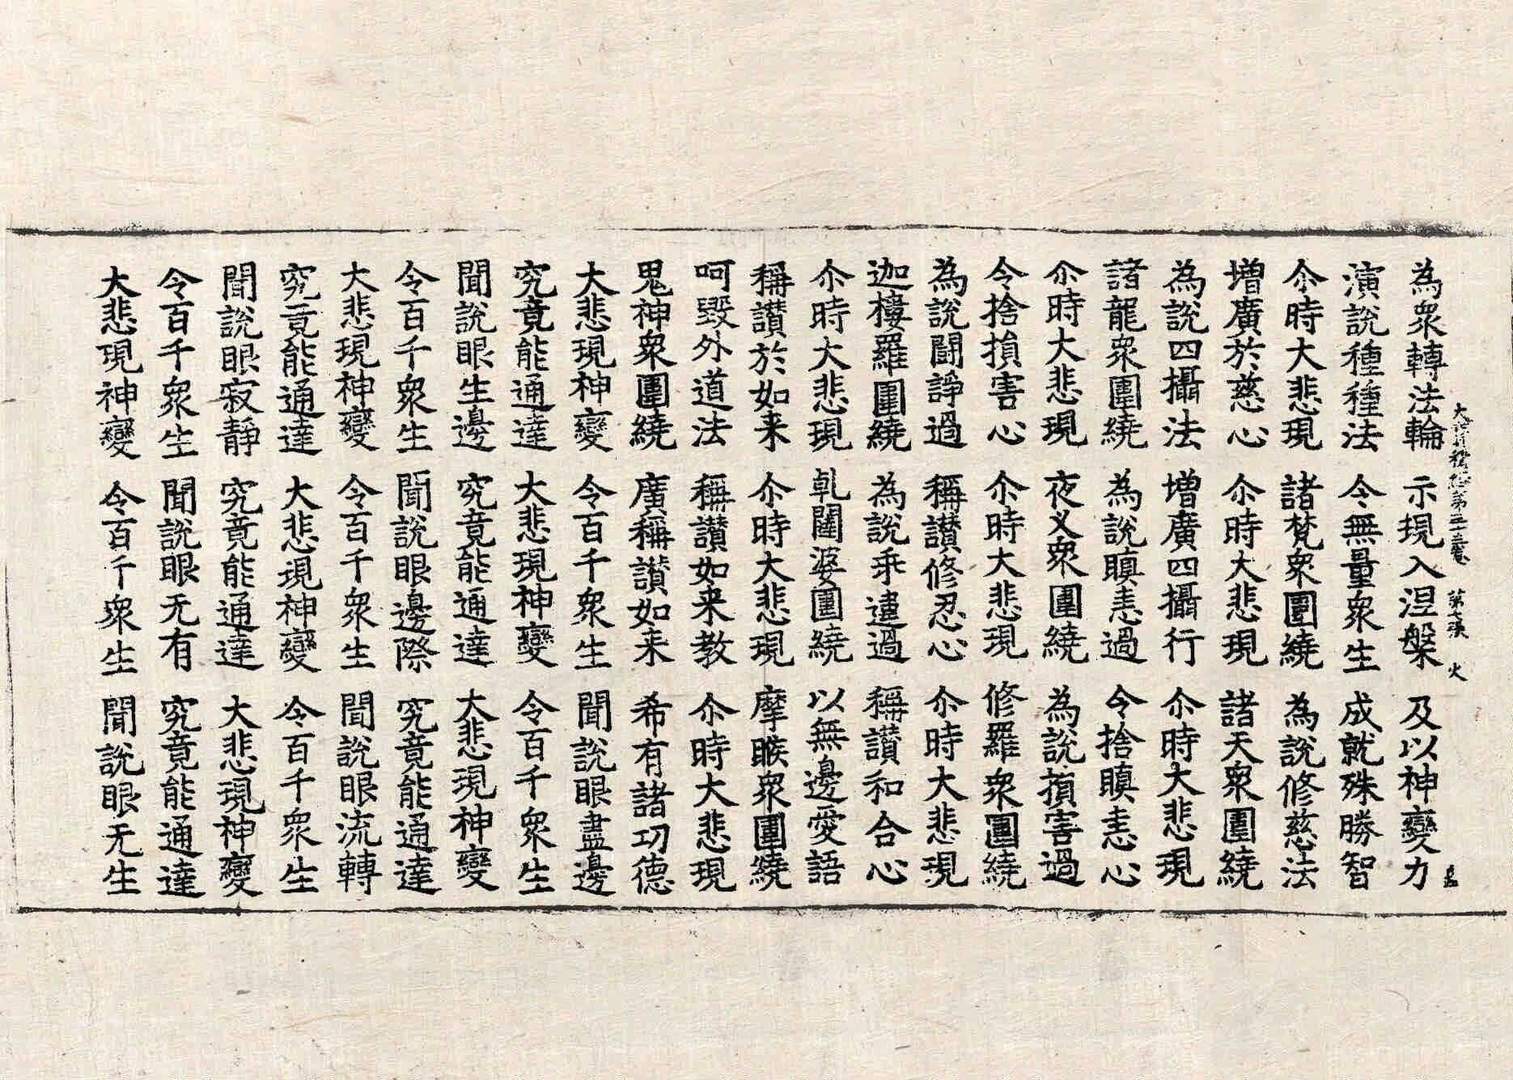 為衆轉法輪 示現入涅槃 及以神變力
演說種種法 令無量衆生 成就殊勝智
尒時大悲現 諸梵衆圍繞 為說修慈法
增廣於慈心 尒時大悲現 諸天衆圍繞
為說四攝法 增廣四攝行 尒時大悲現
諸龍衆圍繞 為說瞋恚過 令捨瞋恚心
尒時大悲現 夜叉衆圍繞 為說損害過
令捨損害心 尒時大悲現 修羅衆圍繞
為說鬪諍過 稱讃修忍心 尒時大悲現
迦樓羅圍繞 為說乖違過 稱讃和合心
尒時大悲現 乹闥婆圍繞 以無邊愛語
稱讃於如来 尒時大悲現 摩睺衆圍繞
呵毀外道法 稱讃如来教 尒時大悲現
鬼神衆圍繞 廣稱讃如来 希有諸功德
大悲現神變 令百千衆生 聞說眼盡邊
究竟能通達 大悲現神變 令百千衆生
聞說眼生邊 究竟能通達 大悲現神變
令百千衆生 聞說眼邊際 究竟能通達
大悲現神變 令百千衆生 聞說眼流轉
究竟能通達 大悲現神變 令百千衆生
聞說眼寂静 究竟能通達 大悲現神變
令百千衆生 聞說眼无有 究竟能通達
大悲現神變 令百千衆生 聞說眼无生